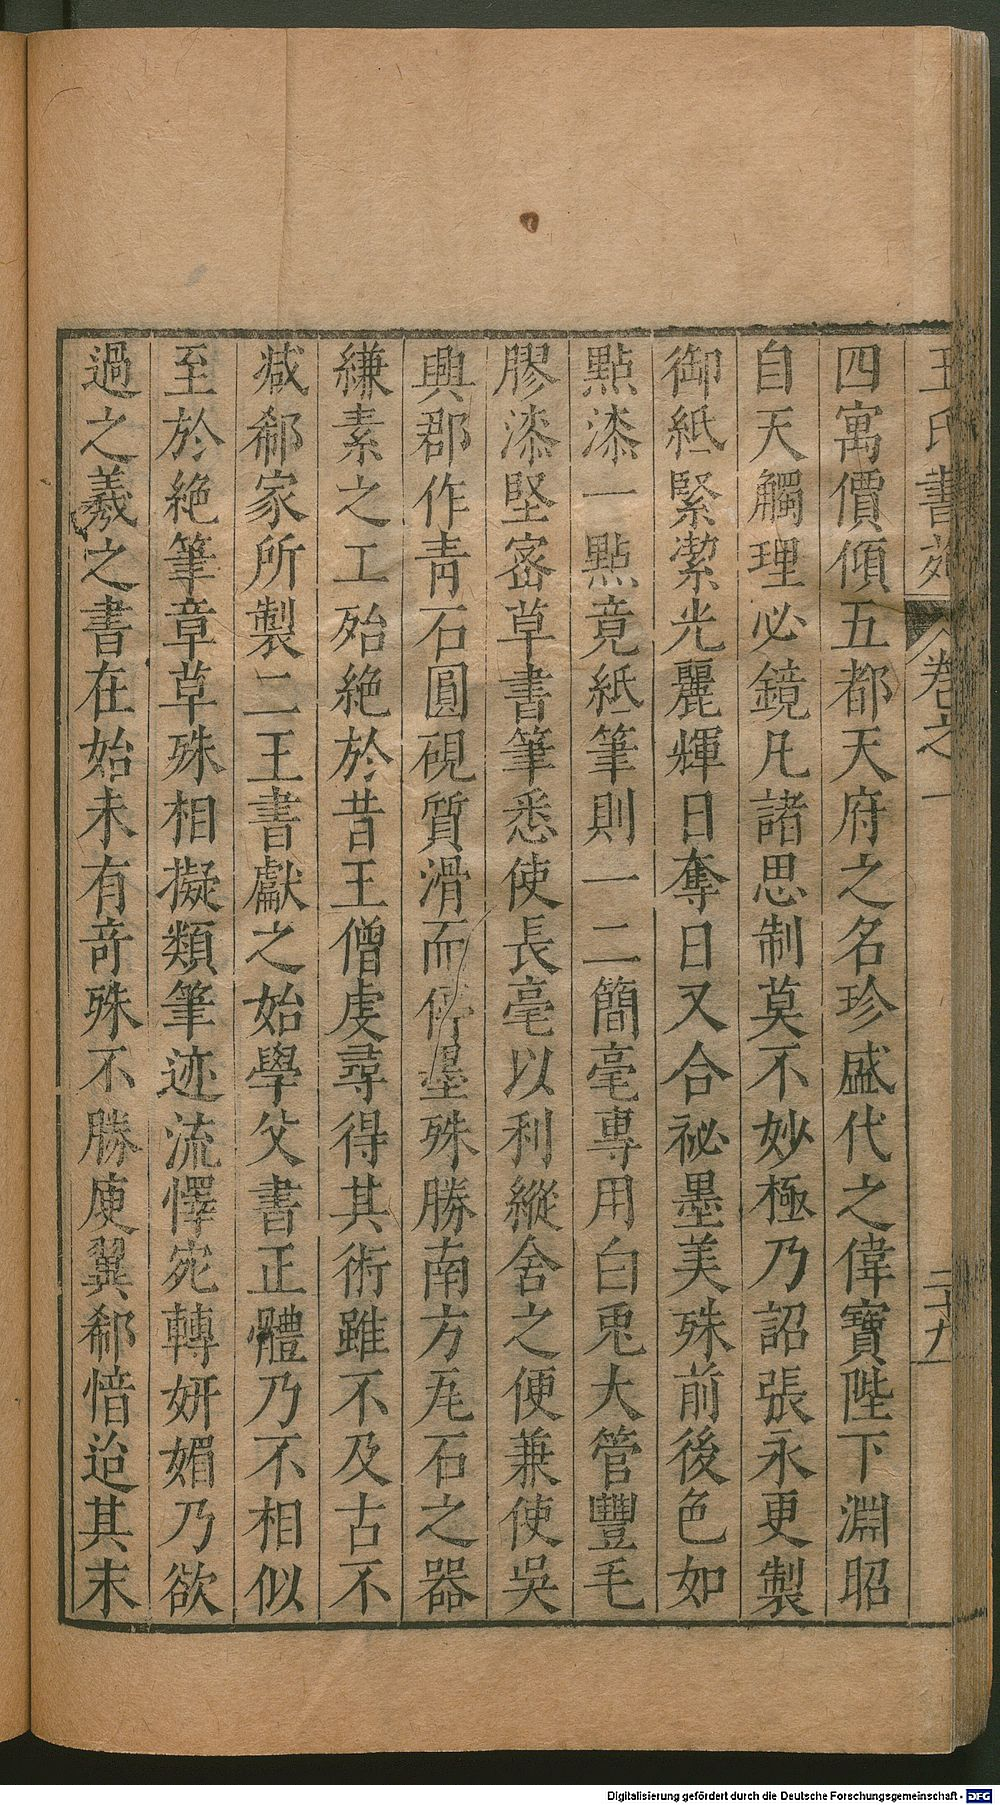 王氏書苑 卷之一 二十九
四寓價傾五都天府之名珍盛代之偉寶陛下淵昭
自天觸理必鏡凡諸思制莫不妙極乃詔張永更製
御紙緊潔光麗輝日奪日又合祕墨美殊前後色如
點漆一點竟紙筆則一二簡毫專用白兎大管豐毛
膠漆堅密草書筆悉使長毫以利縱舍之便兼使吳
興郡作青石圓硯質滑而停墨殊勝南方瓦石之器
縑素之工殆絶於昔王僧虔尋得其術雖不及古不
减郗家所製二王書獻之始學父書正體乃不相似
至於絶筆章草殊相擬類筆迹流懌宛轉妍媚乃欲
過之羲之書在始未有奇殊不勝庾翼郗愔迨其末
Digitalisierung gefördert durch die Deutsche Forschungsgemeinschaft - DFG